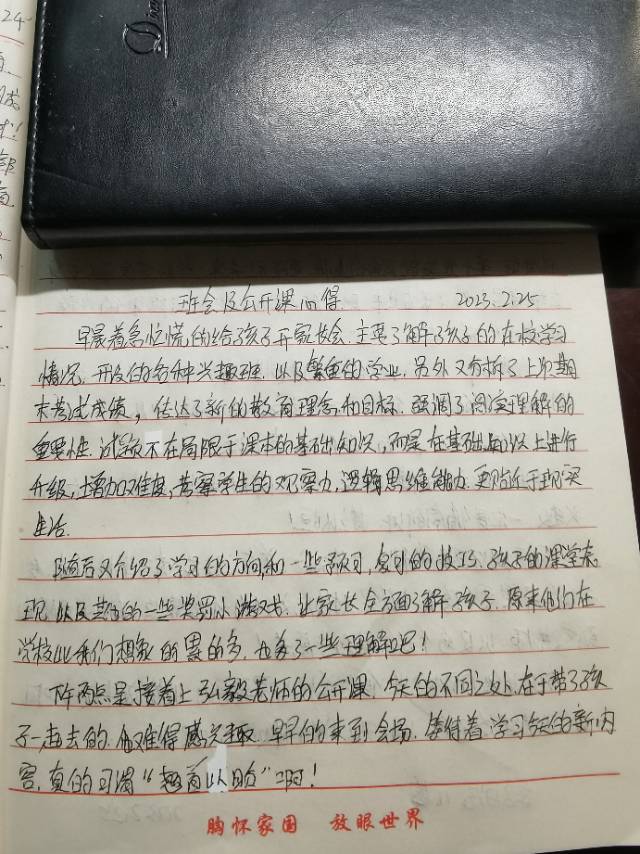 班会及公开课心得 2023.2.25
早晨着急忙慌的给孩子开家长会.主要了解孩子的在校学习
情况.开设的各种兴趣班.以及繁重的学业,另外又分析了上学期
末考试成绩,传达了新的教育理念和目标.强调了阅读理解的
重要性.试题不在局限于课本的基础知识,而是在基础知识上进行
升级,增加难度,考察学生的观察力.逻辑思维能力.更贴近于现实
生活.
随后又介绍了学习的方向,和一些预习,复习的技巧.孩子的课堂表
现.以及其他的一些奖罚小游戏.让家长全方面了解孩子.原来他们在
学校比我们想象的累的多.也多了一些理解吧!
下午两点是接着上弘毅老师的公开课.今天的不同之处.在于带了孩
子一起去的.他难得感兴趣.早早的来到会场.等待着学习今天的新内
容.真的可谓“趋前以盼”啊!
胸怀家国 放眼世界
24